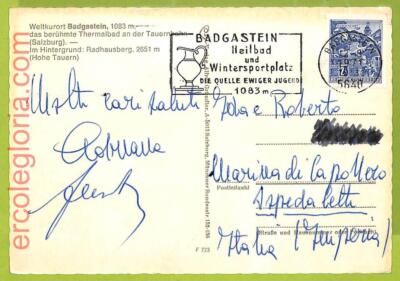 Weltkurort Badgastein, 1083 m
das berühmte Thermalbad an der Tauernbahn
(Salzburg). —
Im Hintergrund: Radhausberg, 2651 m
(Hohe Tauern)
BADGASTEIN
Heilbad
und
Wintersportplatz
DIE QUELLE EWIGER JUGEND
1083 m
1971
5640
Molti cari saluti
Adriana
e Roberto
Marina di Capo Nero
Postleitzahl
Ospedaletti
Straße und Hausnummer oder Postfach
Italia (Imperia)
F 723
ercolegloria.com